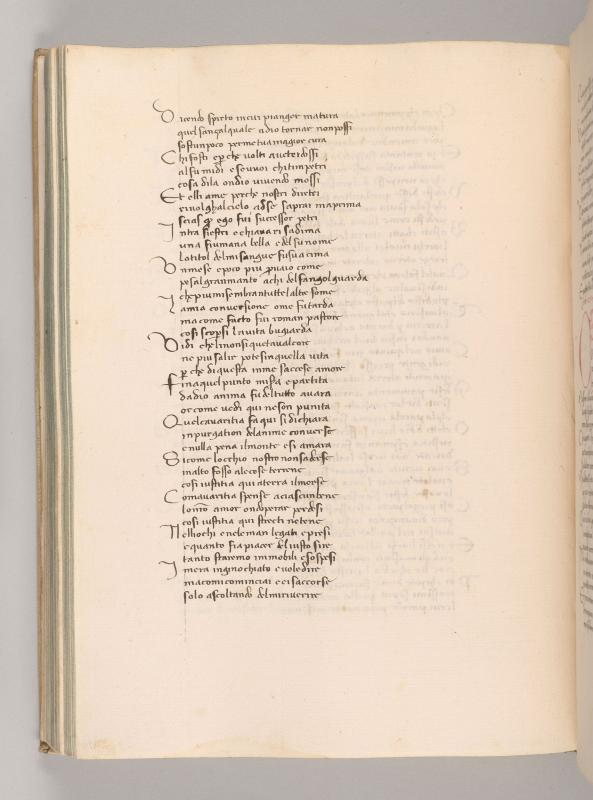 Dicendo spirto in cui pianger matura
quel sançal quale adio tornar non possi
sostun poco per me tua magior cura
Chi fosti e per che volti avete dossi
al su midi e se vuoi chitimpetri
cosa dila ondio vivendo mossi
Et elli ame perche nostri diretri
rivolghalcielo ase saprai ma prima
scias qd ego fui succesor petri
Intra siestri e chiavari sadima
una fiumana bella e del su nome
lo titol del mi sangue fu sua cima
Un mese e poco piu provaio come
pesal gran manto achi del fangol guarda
che piumisembran tutte laltre some
La mia conversione ome fu tarda
ma come facto fui roman pastore
cosi scopersi la vita bugiarda
Vidi che li non si quetava l core
ne piu salir potesi n quella vita
per che di questa in me saccese amore
Fin a quel punto misra e partita
da dio anima fu del tutto avara
or come vedi qui ne son punita
Quel cavaritia fa qui si dichiara
in purgation del anime converse
e nulla pena il monte e si amara
Si come locchio nostro non saderse
in alto fosso ale cose terrene
cosi iustitia qui a terra il merse
Com avaritia spense a ciascun bene
lo nostro amor onde operar perdesi
cosi iustitia qui strecti ne tene
Nelli ochi e nele man legati e presi
e quanto fia piacer del iusto sire
tanto staremo immobili e sospesi
I mera inginochiato e volea dire
ma comi cominciai e ei saccorse
solo ascoltando del mi riverire